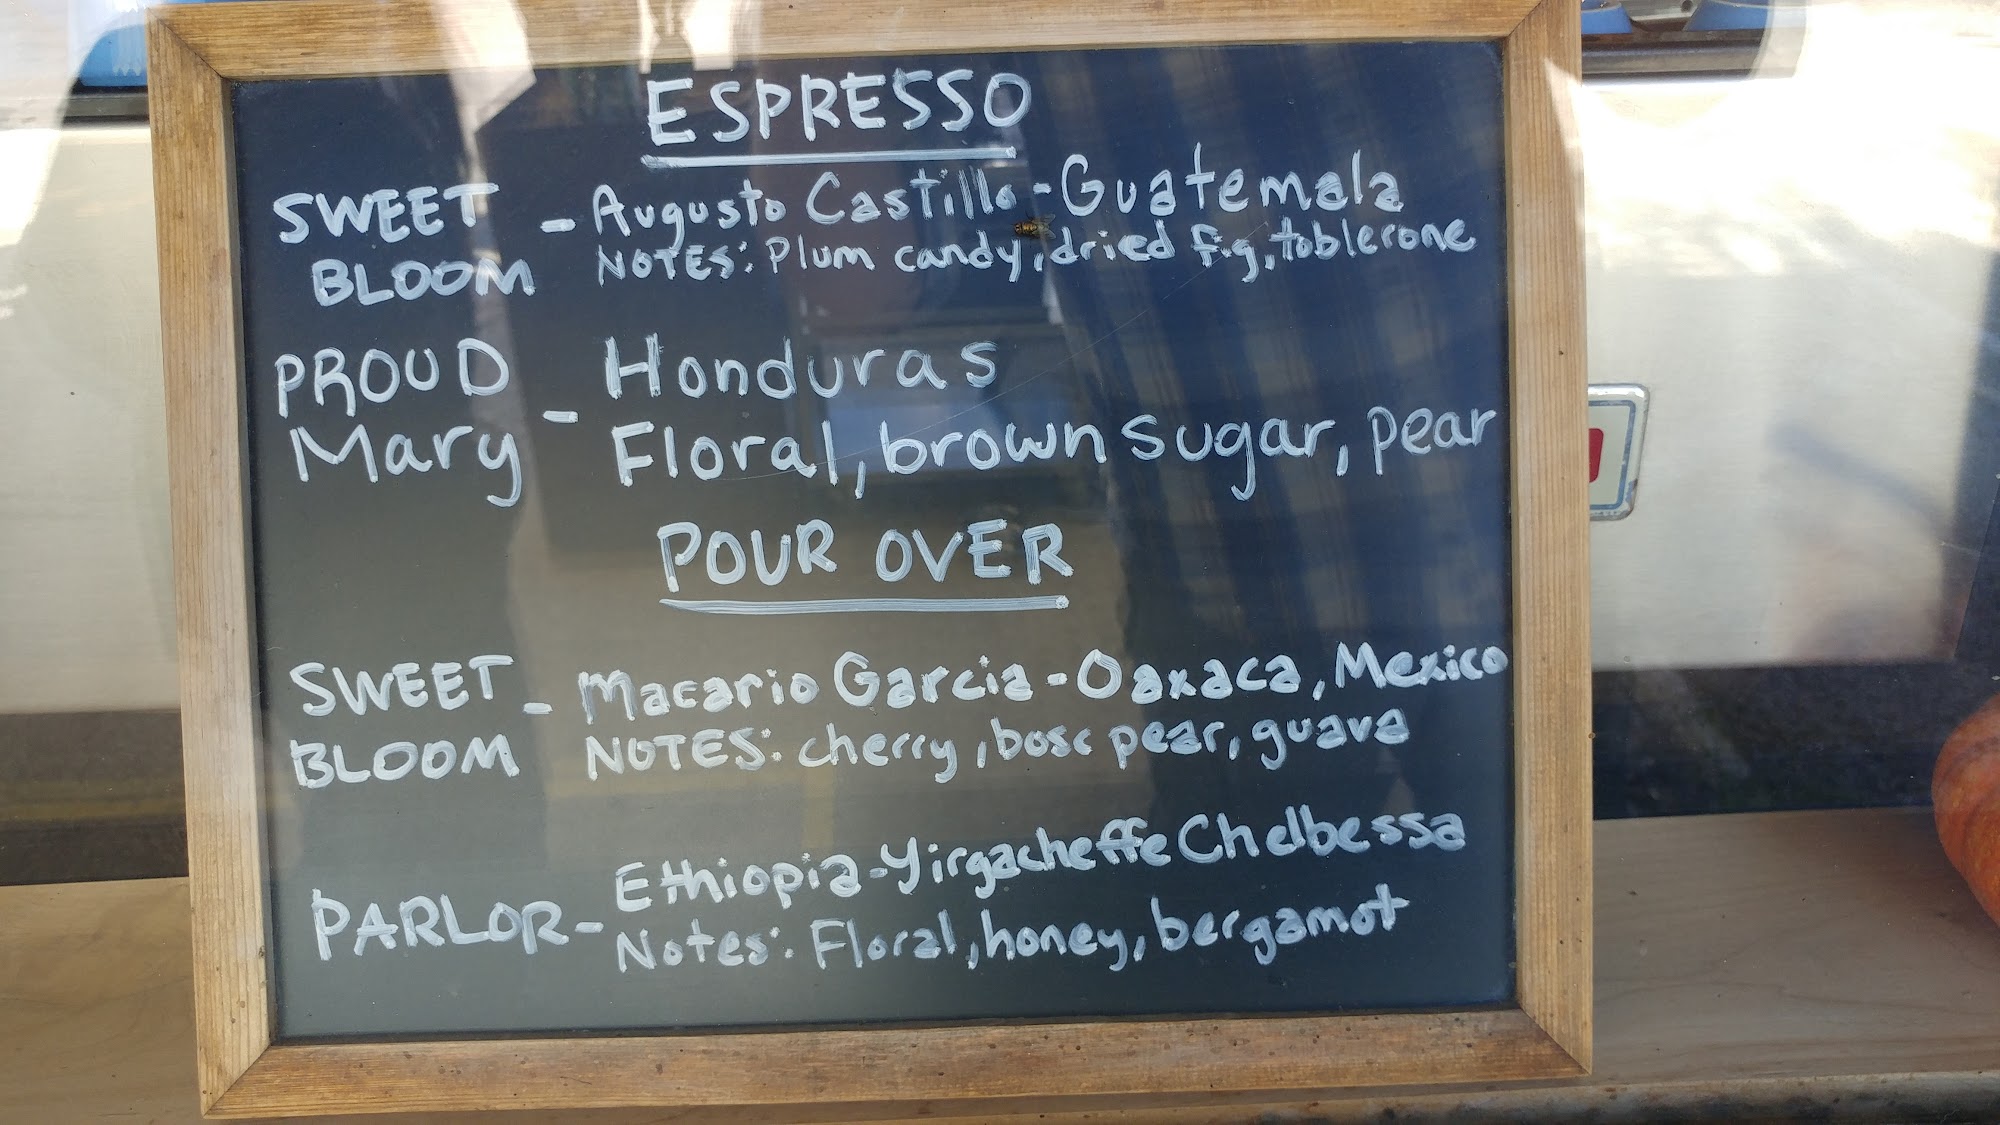 ESPRESSO
SWEET BLOOM - Augusto Castillo - Guatemala
NOTES: Plum candy, dried fig, toblerone
PROUD Mary - Honduras
Floral, brown sugar, pear
POUR OVER
SWEET BLOOM - Macario Garcia - Oaxaca, Mexico
NOTES: cherry, bosc pear, guava
PARLOR - Ethiopia - Yirgacheffe Chelbessa
Notes: Floral, honey, bergamot